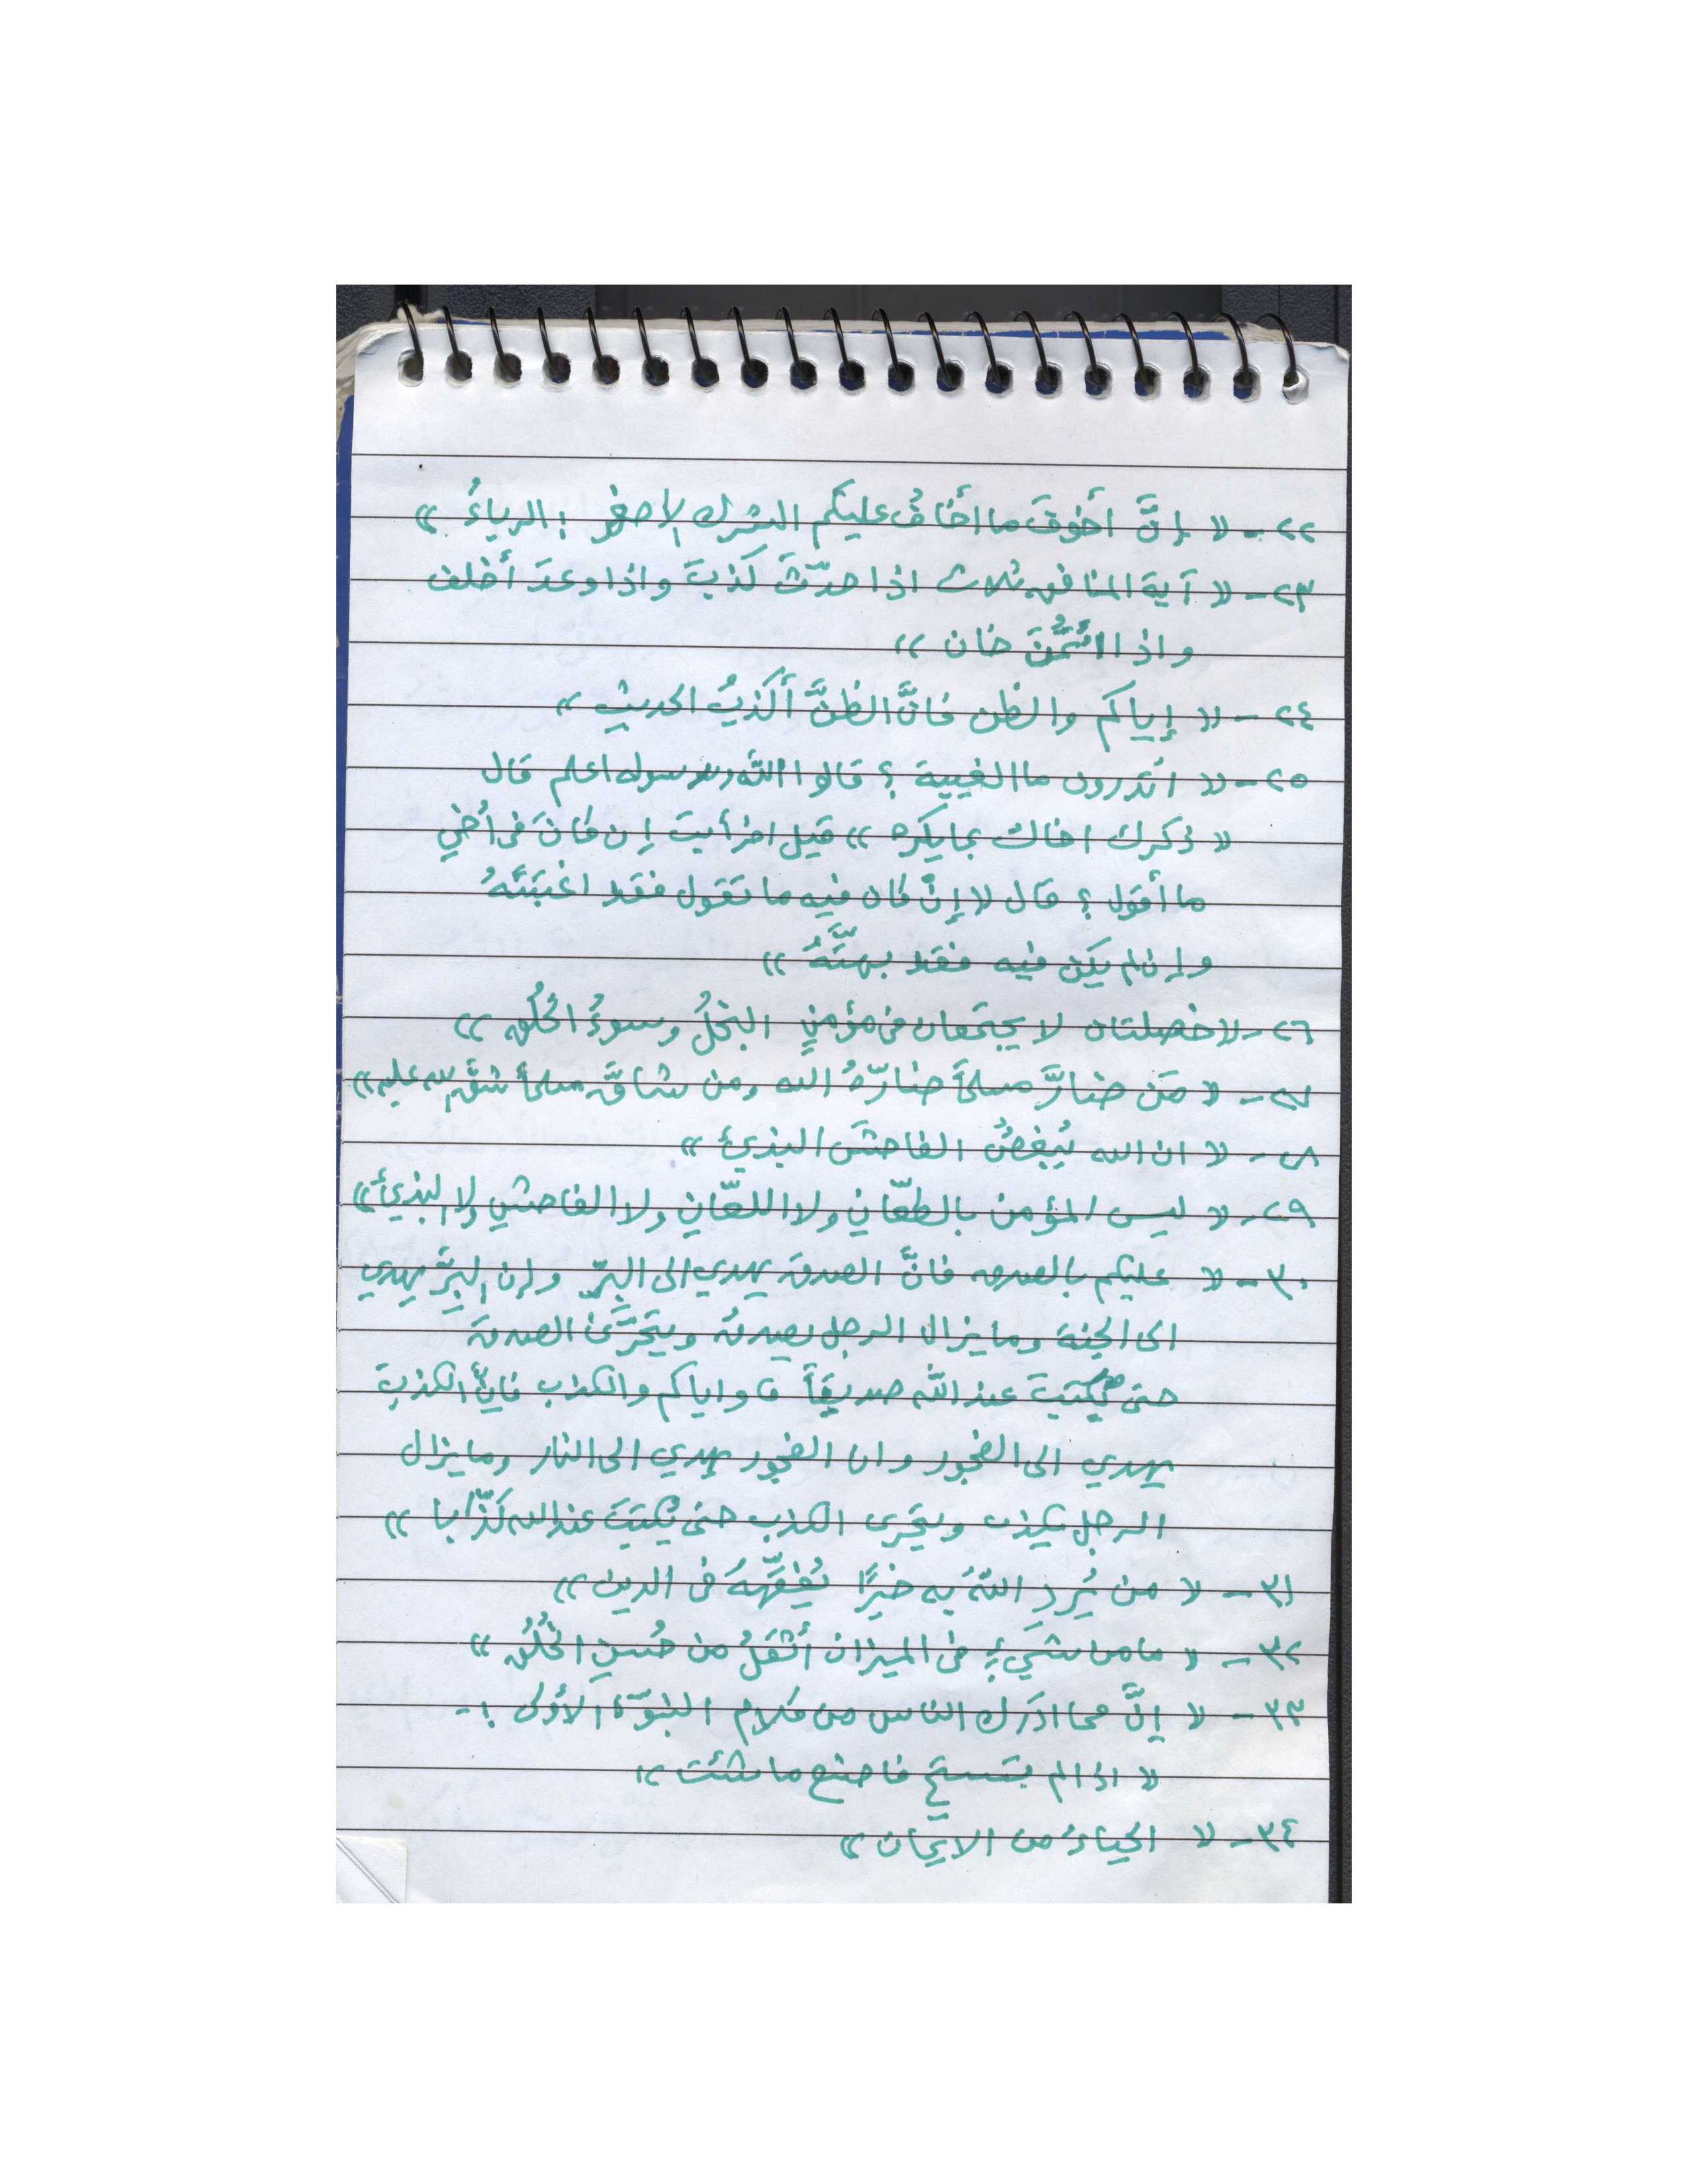 ٢٢ - « إنَّ أخوفَ ما أخافُ عليكم الشرك الاصغر : الرياءُ »
٢٣ - « آية المنافق ثلاث اذا حدّثَ كَذبَ واذا وعدَ أخلف
واذا ائتُمِنَ خان »
٢٤ - « إياكم والظن فانَّ الظنَّ أكذبُ الحديثِ »
٢٥ - « اتدرون ما الغيبة ؟ قالوا اللّه ورسوله اعلم قال
« ذكرك اخاك بما يكره » قيل افرأيت إن كانَ في أخي
ما أقول ؟ قال « إنْ كان فيه ما تقول فقد اغتبَتَهُ
وإن لم يكن فيه فقد بهتَّهُ »
٢٦ - « خصلتان لا يجتمعان في مؤمنٍ البخلُ وسوءُ الخُلُقِ »
٢٧ - « مَن ضارَّ مسلمًا ضارّهُ الله ومن شاقَّ مسلمًا شقَّ الله عليه »
٢٨ - « ان الله يُبغِضُ الفاحشَ البذيءَ »
٢٩ - « ليس المؤمن بالطعّانِ ولا اللعّانِ ولا الفاحشِ ولا البذيء »
٣٠ - « عليكم بالصدق فانَّ الصدقَ يهدي الى البرِّ وإن البِرَّ يهدي
الى الجنة وما يزال الرجل يصدقُ ويتحَرَّىٰ الصدقَ
حتى يُكتبَ عند اللّه صديقاً واياكم والكذب فانَّ الكذبَ
يهدي الى الفجور وان الفجور يهدي الى النار وما يزال
الرجل يكذب ويتحرى الكذب حتى يُكتبَ عند الله كَذّابا »
٣١ - « من يُرِدِ اللّهُ به خيرًا يُفقِّههُ في الدين »
٣٢ - « ما من شيءٍ في الميزان أثقلُ من حُسنِ الخُلُقِ »
٣٣ - « إنَّ مما ادَرك الناس من كلام النبوّة الأولى :-
« اذا لم تستحِ فاصنع ما شئت »
٣٤ - « الحياءُ من الايمان »